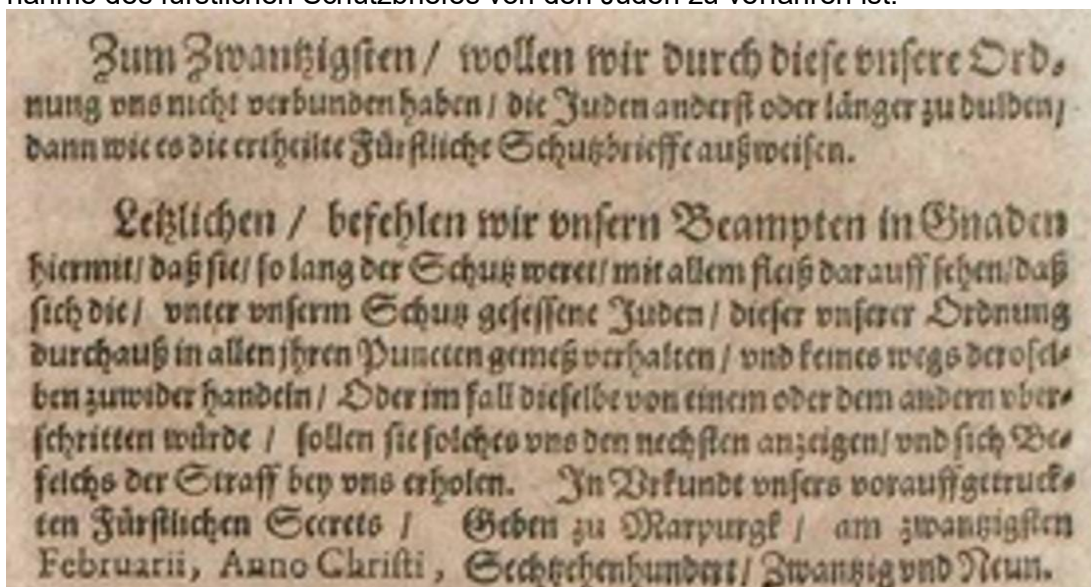 nahme des fürstlichen Schutzbriefes von den Juden zu verfahren ist.
Zum Zwantzigsten / wollen wir durch diese vnsere Ord-
nung vns nicht verbunden haben / die Juden anderst oder länger zu dulden /
dann wie es die ertheilte Fürstliche Schutzbrieffe außweisen.
Letzlichen / befehlen wir vnsern Beampten in Gnaden
hiermit / daß sie / so lang der Schutz weret / mit allem fleiß darauff sehen / daß
sich die / vnter vnserm Schutz gesessene Juden / dieser vnserer Ordnung
durchauß in allen jhren Puncten gemeß verhalten / vnd keines wegs derosel-
ben zuwider handeln / Oder im fall dieselbe von einem oder dem andern vber-
schritten würde / sollen sie solches vns den nechsten anzeigen / vnd sich Be-
felchs der Straff bey vns erholen. In Vrkundt vnsers vorauffgetruck-
ten Fürstlichen Secrets / Geben zu Marpurgk / am zwantzigsten
Februarii, Anno Christi, Sechtzehenhundert / Zwantzig vnd Neun.